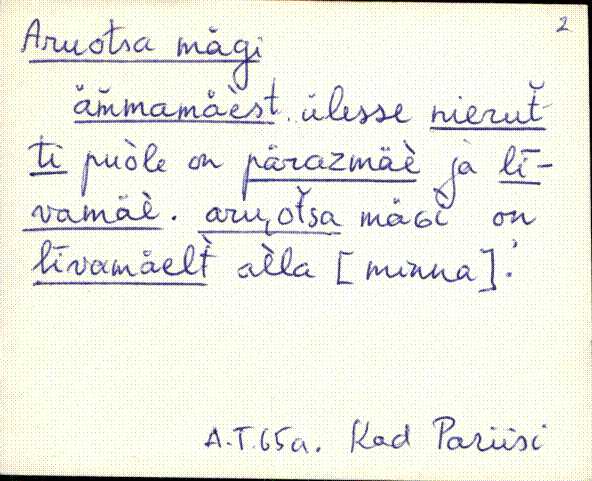 2
Aruotsa mägi
ämmamäèst ülesse nierut̆-
ti puòle on pärazmäè ja lī-
vamäè. aruot̆sa mägi on
līvamäelt̀ alla [minna].
A.T. 65a. Kad Pariisi